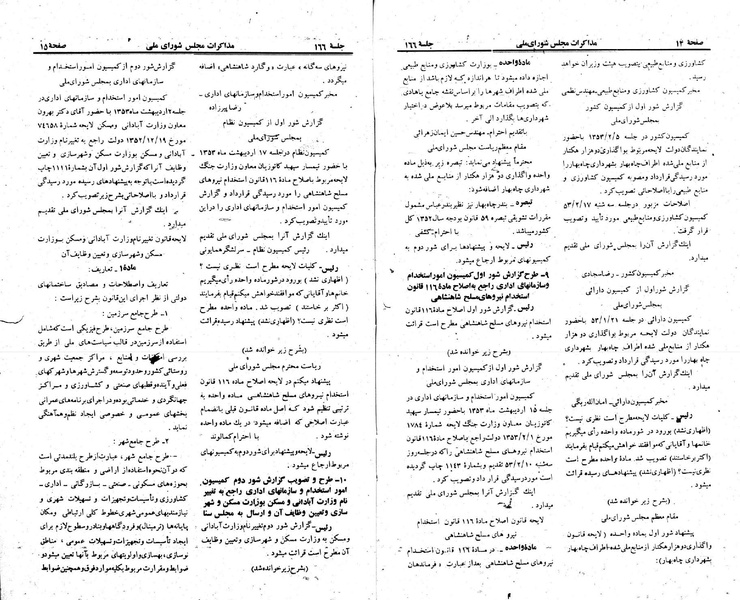 صفحهٔ ۱۴
مذاکرات مجلس شورای‌ملی
جلسهٔ ۱۶۶
کشاورزی و منابع طبیعی بتصویب هیئت وزیران خواهد
رسید.
مخبرکمیسیون کشاورزی و منابع طبیعی. مهندس نظمی
گزارش شور اول از کمیسیون کشور
بمجلس شورای‌ملی
کمیسیون کشور در جلسه ۱۳۵۳/۲/۵ باحضور
نمایندگان دولت لایحه مربوط بواگذاری دو هزار هکتار
از منابع ملی شده اطراف چاه بهار بشهرداری چاه بهار را
مورد رسیدگی قرارداد و مصوبه کمیسیون کشاورزی و
منابع طبیعی را با اصلاحاتی تصویب کرد.
اصلاحات مزبور در جلسه سه شنبه ۵۳/۲/۱۷
کمیسیون کشاورزی و منابع طبیعی مورد تأیید و تصویب
قرار گرفت.
اینک گزارش آنرا بمجلس شورای ملی تقدیم
میدارد.
مخبر کمیسیون کشور - رضا سجادی
گزارش شور اول از کمیسیون دارائی
بمجلس شورای‌ملی
کمیسیون دارائی در جلسه ۵۳/۱/۲۱ باحضور
نمایندگان دولت لایحه مربوط بواگذاری دو هزار
هکتار از منابع ملی شده اطراف چاه بهار بشهرداری
چاه بهار را مورد رسیدگی قرارداد و تصویب کرد.
اینک گزارش آنرا بمجلس شورای ملی تقدیم
میدارد.
مخبر کمیسیون دارائی - امان‌الله ریگی
رئیس- کلیات لایحه مطرح است نظری نیست؟
(اظهاری نشد) ورود در شور ماده واحده رأی میگیریم
خانمها و آقایانی که موافقند خواهش میکنم قیام بفرمایند
(اکثر برخاستند) تصویب شد. مادهٔ واحده مطرح است
نظری نیست؟ (اظهاری نشد) پیشنهادهای رسیده قرائت
میشود.
(بشرح زیر خوانده شد)
مقام معظم مجلس شورای‌ملی
پیشنهاد شور اول ماده واحده (لایحه قانون
واگذاری دو هزار هکتار از منابع ملی شده اطراف چاه بهار
بشهرداری چاه بهار):
مادهٔ واحده - بوزارت کشاورزی و منابع طبیعی
اجازه داده میشود تا هر اندازه که لازم باشد از منابع
ملی شده اطراف شهرها را بر اساس نقشه جامع یا هادی
که بتصویب مقامات مربوط میرسد بلاعوض در اختیار
شهرداری‌ها بگذارد الی آخر.
با تقدیم احترام. مهندس حسین ایمان‌زهرائی
مقام معظم ریاست مجلس شورای‌ملی
محترماً پیشنهاد می‌نماید: تبصره زیر بذیل ماده
واحده واگذاری دو هزار هکتار از منابع ملی شده به
شهرداری چاه بهار اضافه شود:
تبصره - بندر چاه بهار نیز نظیر بندر عباس مشمول
مقررات تشویقی تبصره ۵۹ قانون بودجه سال ۱۳۵۲ کل
کشور میباشد. با احترام - کشفی
رئیس - لایحه و پیشنهادها برای شور دوم به
کمیسیونهای مربوط ارجاع میشود.
۹- طرح گزارش شور اول کمیسیون امور استخدام
و سازمانهای اداری راجع به اصلاح ماده ۱۱۶ قانون
استخدام نیروهای مسلح شاهنشاهی
رئیس - گزارش شور اول اصلاح مادهٔ ۱۱۶ قانون
استخدام نیروهای مسلح شاهنشاهی مطرح است قرائت
میشود.
(بشرح زیر خوانده شد)
گزارش شور اول از کمیسیون امور استخدام و
سازمانهای اداری بمجلس شورای‌ملی
کمیسیون امور استخدام و سازمانهای اداری در
جلسه ۱۵ اردیبهشت ماه ۱۳۵۳ با حضور تیمسار سپهبد
کاتوزیان معاون وزارت جنگ لایحه شمارهٔ ۱۷۸۴
مورخ ۱۳۵۳/۲/۱ دولت راجع به اصلاح مادهٔ ۱۱۶ قانون
استخدام نیروهای مسلح شاهنشاهی را که در جلسه روز
سه‌شنبه ۵۳/۲/۱۰ تقدیم و بشمارهٔ ۱۱۴۳ چاپ گردیده
است مورد رسیدگی قرارداد و تصویب کرد.
اینک گزارش آنرا بمجلس شورای ملی تقدیم
میدارد.
لایحه قانون اصلاح مادهٔ ۱۱۶ قانون استخدام
نیروهای مسلح شاهنشاهی
مادهٔ واحده - در مادهٔ ۱۱۶ قانون استخدام
نیروهای مسلح شاهنشاهی بعد از عبارت، و فرماندهان
جلسهٔ ۱۶۶
مذاکرات مجلس شورای ملی
صفحهٔ ۱۵
نیروهای سه‌گانه، عبارت، و گارد شاهنشاهی، اضافه
میگردد.
مخبر کمیسیون امور استخدام و سازمانهای اداری -
رضا پیرزاده
گزارش شور اول از کمیسیون نظام
بمجلس شورای‌ملی
کمیسیون نظام در جلسه ۱۷ اردیبهشت ماه ۱۳۵۳
با حضور تیمسار سپهبد کاتوزیان معاون وزارت جنگ
لایحه مربوط به اصلاح مادهٔ ۱۱۶ قانون استخدام نیروهای
مسلح شاهنشاهی را مورد رسیدگی قرارداد و گزارش
کمیسیون امور استخدام و سازمانهای اداری را در این
مورد تأیید و تصویب کرد.
اینک گزارش آنرا بمجلس شورای ملی تقدیم
میدارد. رئیس کمیسیون نظام - سرلشگر همایونی
رئیس - کلیات لایحه مطرح است نظری نیست؟
(اظهاری نشد) بورود در شور ماده واحده رأی میگیریم
خانم‌ها و آقایانی که موافقند خواهش میکنم قیام بفرمایند
(اکثر برخاستند) تصویب شد. ماده واحده مطرح
است نظری نیست؟ (اظهاری نشد) پیشنهاد رسیده قرائت
میشود.
(بشرح زیر خوانده شد)
ریاست محترم مجلس شورای ملی
پیشنهاد میکنم در لایحه اصلاح مادهٔ ۱۱۶ قانون
استخدام نیروهای مسلح شاهنشاهی مادهٔ واحده به
ترتیبی تنظیم شود که اصل مادهٔ قانون قبلی بانضمام
عبارت اصلاحی که اضافه میشود در یک ماده واحده
نوشته شود. با احترام کمالوند
رئیس - لایحه و پیشنهاد برای شور دوم به کمیسیونهای
مربوط ارجاع میشود.
۱۰- طرح و تصویب گزارش شور دوم کمیسیون
امور استخدام و سازمانهای اداری راجع به تغییر
نام وزارت آبادانی و مسکن بوزارت مسکن و شهر
سازی و تعیین وظایف آن و ارسال به مجلس سنا
رئیس - گزارش شور دوم تغییر نام وزارت آبادانی
و مسکن به وزارت مسکن و شهرسازی و تعیین وظایف
آن مطرح است قرائت میشود.
(بشرح زیر خوانده شد)
گزارش شور دوم از کمیسیون امور استخدام و
سازمانهای اداری بمجلس شورای‌ملی
کمیسیون امور استخدام و سازمانهای اداری در
جلسه ۲ اردیبهشت ماه ۱۳۵۳ با حضور آقای دکتر بهرون
معاون وزارت آبادانی و مسکن لایحه شمارهٔ ۷۴۶۵۸
مورخ ۱۳۵۲/۱۲/۱۹ دولت راجع به تغییر نام وزارت
آبادانی و مسکن بوزارت مسکن و شهرسازی و تعیین
وظایف آنرا که گزارش شور اول آن بشمارهٔ ۱۱۱۱ چاپ
گردیده است با توجه به پیشنهادهای رسیده مورد رسیدگی
قرارداد و با اصلاحاتی بشرح زیر تصویب کرد.
اینک گزارش آنرا بمجلس شورای ملی تقدیم
میدارد.
لایحه قانون تغییر نام وزارت آبادانی و مسکن بوزارت
مسکن و شهرسازی و تعیین وظایف آن
مادهٔ ۱ - تعاریف:
تعاریف و اصطلاحات و مصادیق ساختمانهای
دولتی از نظر اجرای این قانون بشرح زیر است:
۱- طرح جامع سرزمین:
طرح جامع سرزمین، طرح فیزیکی است که شامل
استفاده از سرزمین در قالب سیاست‌های ملی از طریق
بررسی امکانات و منابع، مراکز جمعیت شهری و
روستائی کشور و حدود توسعه و گسترش شهرها و شهرکهای
فعلی و آینده و قطبهای صنعتی و کشاورزی و مراکز
جهانگردی و خدماتی بوده و در اجرای برنامه‌های عمرانی
بخشهای عمومی و خصوصی ایجاد نظم و هماهنگی
نماید.
۲- طرح جامع شهر:
طرح جامع شهر، عبارت از طرح بلندمدتی است
که در آن نحوه استفاده از اراضی و منطقه بندی مربوط
بحوزه‌های مسکونی، صنعتی، بازرگانی، اداری،
کشاورزی و تأسیسات و تجهیزات و تسهیلات شهری و
نیازمندیهای عمومی شهری خطوط کلی ارتباطی و مکان
پایانه‌ها (ترمینال) و فرودگاهها و بنادر و سطوح لازم برای
ایجاد تأسیسات و تجهیزات و تسهیلات عمومی، مناطق
نوسازی، بهسازی و اولویتهای مربوط به آنها تعیین میشود و
ضوابط و مقررات مربوط بکلیه موارد فوق و همچنین ضوابط